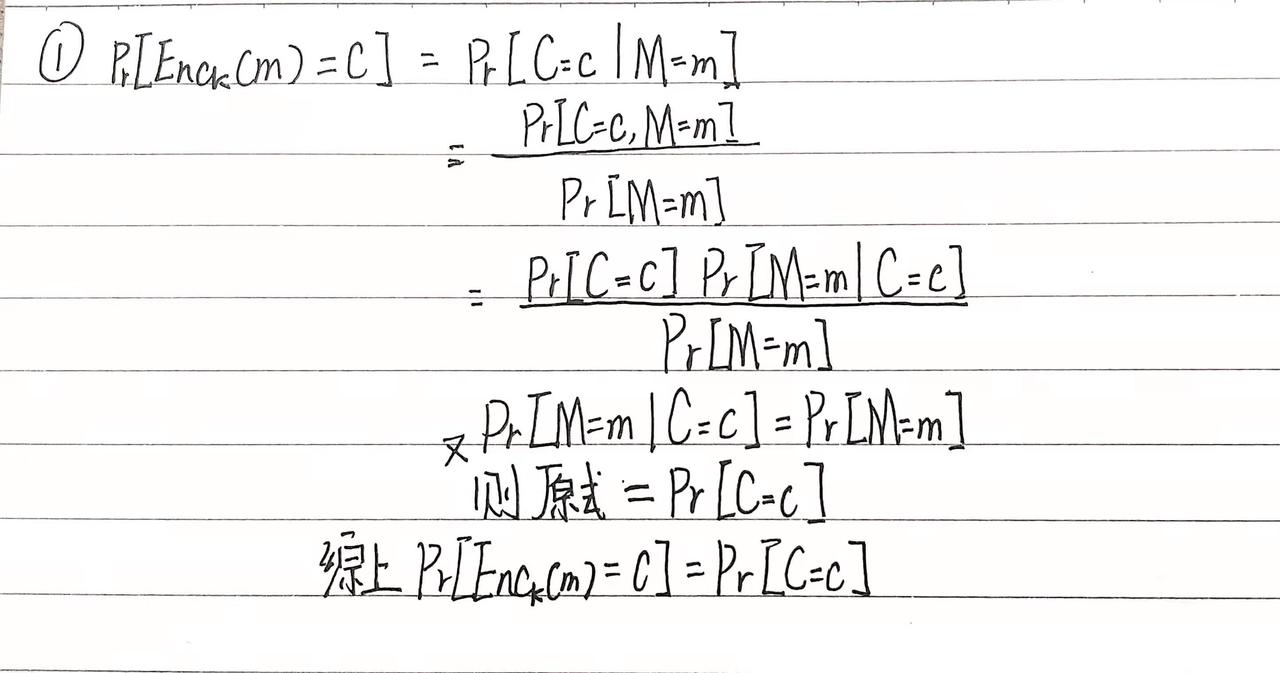 ① Pr[Enck(m)=C] = Pr[C=c|M=m]
= Pr[C=c, M=m] / Pr[M=m]
= Pr[C=c] Pr[M=m|C=c] / Pr[M=m]
又 Pr[M=m|C=c]=Pr[M=m]
则原式 = Pr[C=c]
综上 Pr[Enck(m)=C]=Pr[C=c]